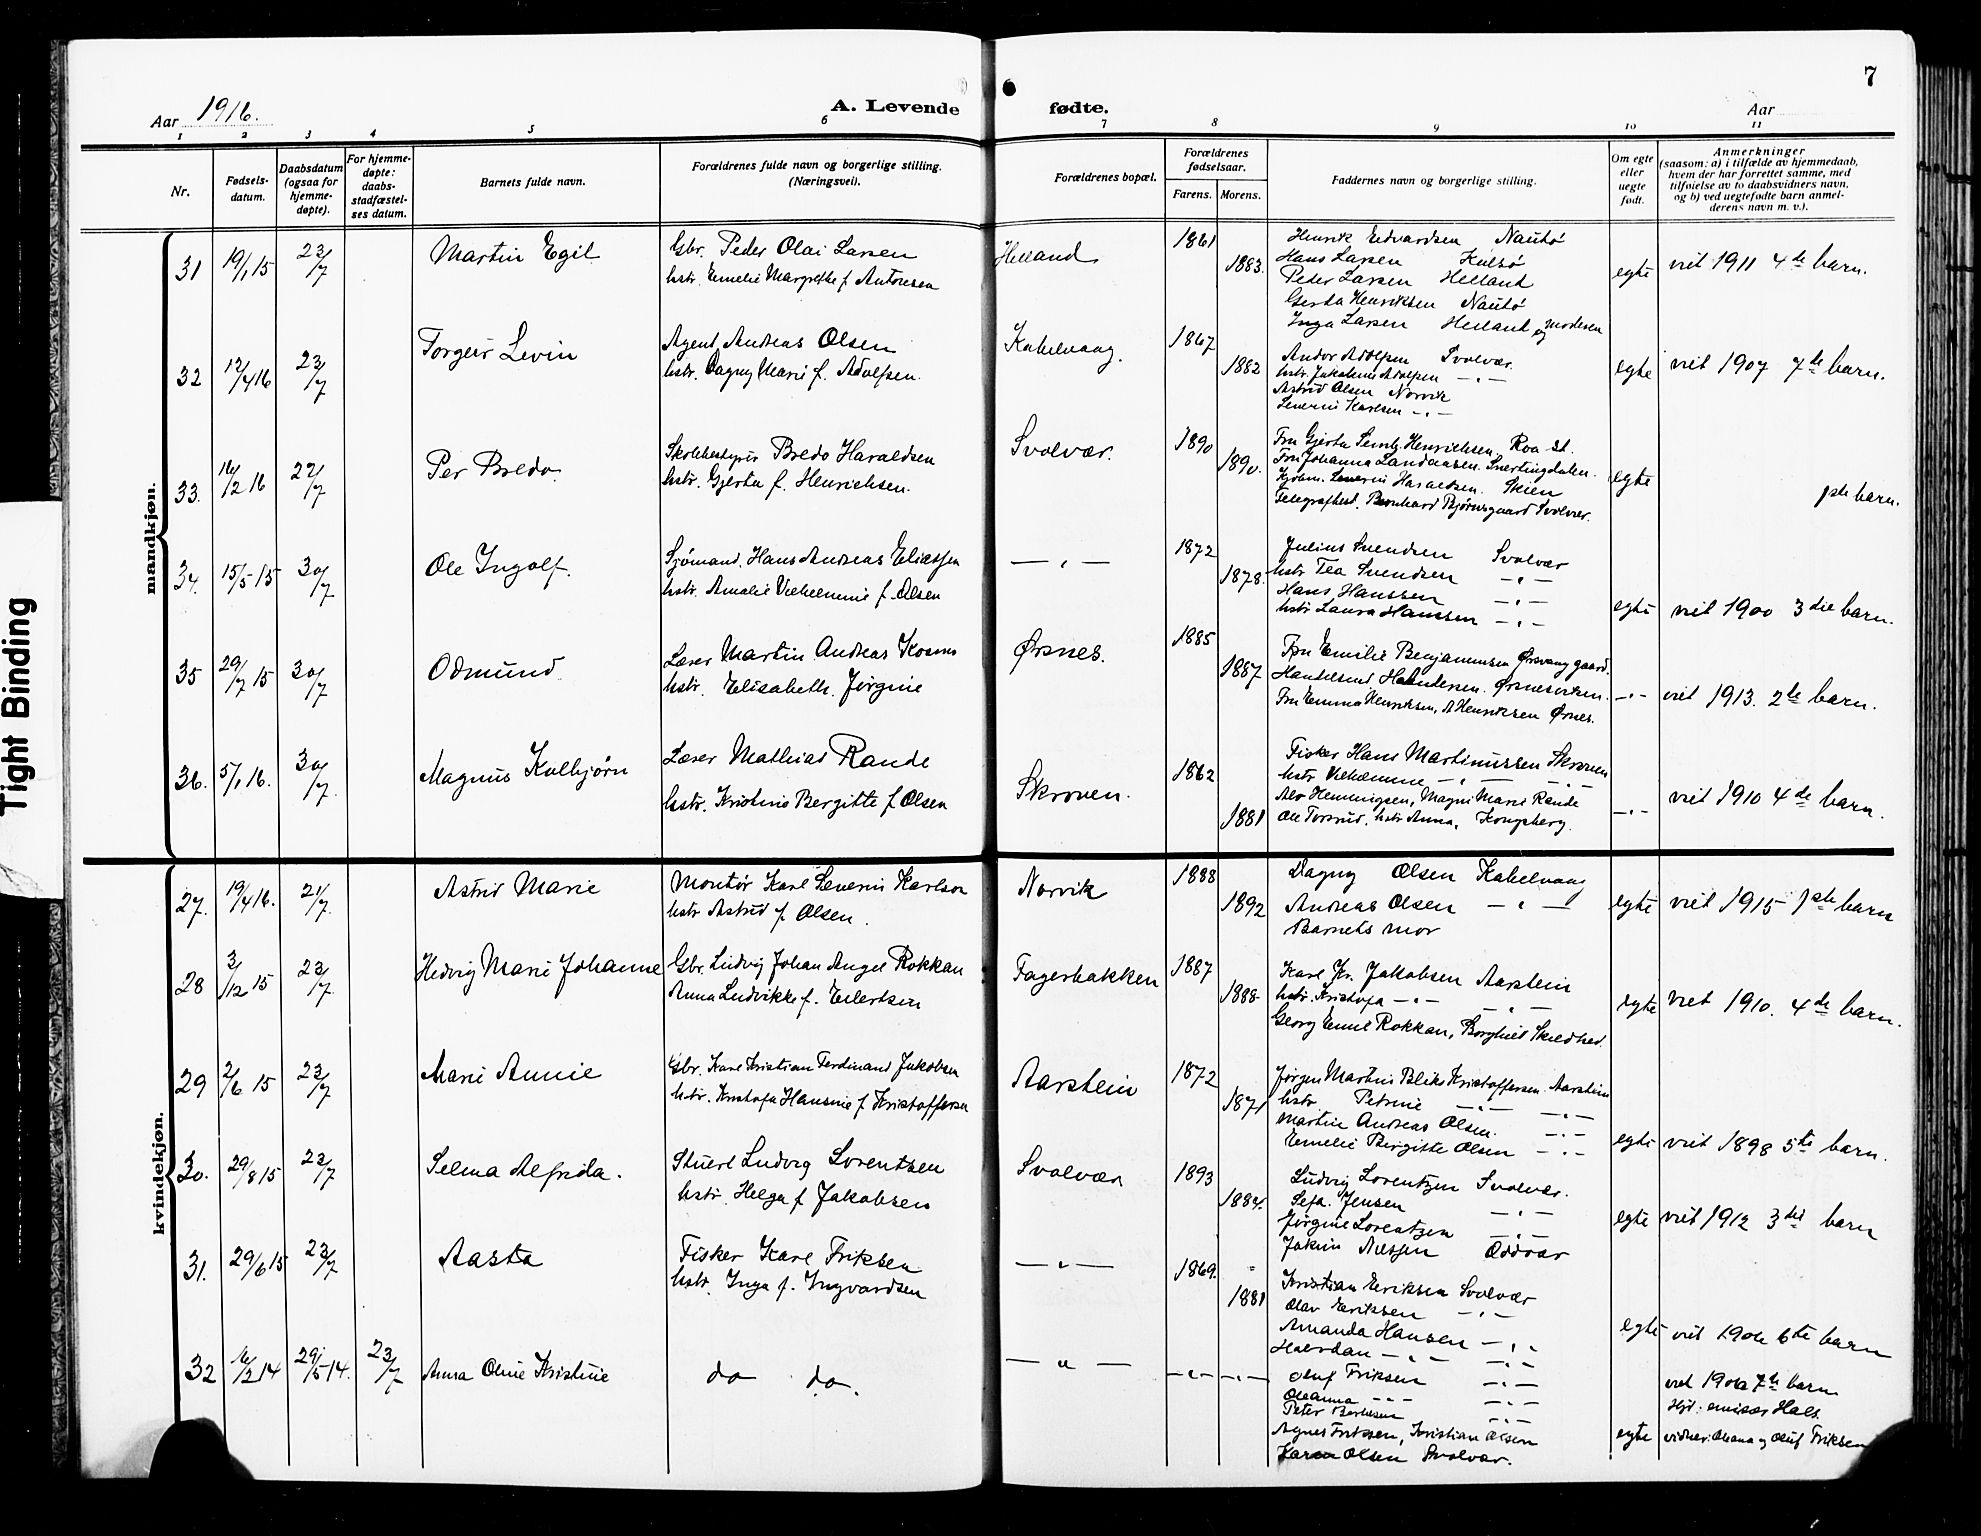 7
Aar 1916. A. Levende fødte. Aar
1 2 3 4 5 6 7 8 9 10 11
Nr. Fødsels-datum. Daabsdatum (ogsaa for hjemme-døpte). For hjemme-døpte: daabs-stadfæstel-ses datum. Barnets fulde navn. Forældrenes fulde navn og borgerlige stilling. (Næringsvei). Forældrenes bopæl. Forældrenes fødselsaar. Farens. Morens. Faddernes navn og borgerlige stilling. Om egte eller uegte født. Anmerkninger (saasom: a) i tilfælde av hjemmedaab, hvem der har forrettet samme, med tilføielse av to daabsvidners navn, og b) ved uegtefødte barn anmel-derens navn m. v.).
Tight Binding
mandkjøn.
31 19/1 15 23/7 Martin Egil Gbr. Peder Olai Larsen Helland 1861 Henrik Edvardsen Nautø
hstr. Emelie Margrethe f. Antonsen 1883. Hans Larsen egte viet 1911 4de barn.
Peder Larsen Helland
Gerda Henriksen Nautø
Inga Larsen Helland og moderen
32 12/4 16 23/7 Torgeir Levin Agent Andreas Olsen Kabelvaag. 1867 Andor Adolfsen Svolvær.
hstr. Dagny Marie f. Adolfsen. 1882 hstr. Jakobine Adolfsen — " — egte viet 1907 7de barn.
Astrid Olsen Narvik
Severin Karlsen — " —
33. 16/2 16 27/7 Per Bredo Skolebestyrer Bredo Haraldsen Svolvær. 1890 Fru Gjerta Semb Henrichsen, Roa st.
hstr. Gjerta f. Henrichsen. 1890. Fru Johanna Landaasen. Snertingdalen. egte 1ste barn.
Severin Haraldsen. Skien
Telegrafbest. Bernhard Bjørnsgaard Svolvær.
34. 15/5 15 30/7 Ole Ingolf. Sjømand. Hans Andreas Eliassen — " — 1872 Julius Svendsen Svolvær
hstr. Amalie Vilhelmine f. Olsen 1878. hstr Tea Svendsen — " —
Hans Hanssen — " —
hstr Laura Hanssen — " — egte viet 1900 3die barn.
35 29/7 15 30/7 Odmund Lærer Martin Andreas Ørsnes. 1885 Fru Emilie Benjaminsen Ørsvaag gaard.
hstr. Elisabeth. Jørgine 1887 Ørsnesviken. — " — viet 1913. 2de barn.
Fru Emma Henriksen, A Henriksen Ørsnes.
36. 5/1 16. 30/7. Magnus Kolbjørn Lærer Mathias Rande Skroven. 1862 Fisker Hans Martinussen Skroven
hstr. Kristine Bergitte f. Olsen 1881 hstr Vilhelmine — " — — " —
Alv Hemmingsen, Magni Marie Rande — " — viet 1910 4de barn.
Ole Torsrud, hstr Anna, Kongsberg.
kvindekjøn.
27. 19/4 16. 21/7. Astrid Marie Montør Karl Severin Karlson Narvik 1888 Dagny Olsen Kabelvaag
hstr Astrid f. Olsen. 1892 Andreas Olsen — " — egte viet 1915 1ste barn
Barnets mor
28 3/12 15 23/7. Hedvig Marie Johanne Gbr. Ludvig Johan Angel Rokkan Fagerbakken 1887 Karl Kr. Jakobsen Aarstein
Anna Ludvikke f. Eilertsen 1888 hstr. Kristofa — " — — " — egte viet 1910. 4de barn.
Georg Emil Rokkan, Borghild
29 2/6 15 23/7 Marie Annie Gbr. Karl Kristian Ferdinand Jakobsen Aarstein 1872 Jørgen Martin Blix Kristoffersen. Aarstein
hstr. Kristofa Hansine f. Kristoffersen 1871 hstr Petrine — " — — " —
Martin Andreas Olsen. — " —
Emelie Bergitte Olsen — " — egte viet 1898 5te barn.
30. 29/8 15 23/7 Selma Alfrida. Stuert Ludvig Lorentsen Svolvær 1893 Ludvig Lorentzen Svolvær.
hstr. Helga f. Jakobsen 1884. Jensen — " —
Jørgine Lorentzen — " — egte viet 1912 3die barn
Oddvær
31. 29/6 15 23/7 Aasta Fisker Karl Eriksen — " — 1869. Kristian Eriksen Svolvær
hstr. Inga f. Ingvardsen 1881 Olav Eriksen — " —
Amanda Hansen — " — egte viet 1906 6te barn
Halvdan — " — — " —
32 16/2 14 29/5 14. 23/7 Anna Oline Kristine do do. — " — — " — — " — Oluf Eriksen — " — viet 1906 7de barn
Oleanna — " — — " — Hjd: emisær Hals.
Peter — " —
Agnes Eriksen, Kristian Olsen egte vidner: Oleana og Oluf Eriksen
Karen Olsen Svolvær.